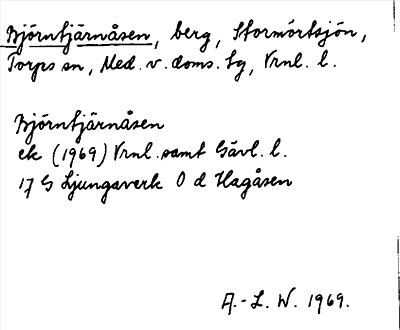 Björntjärnåsen, berg, Stormörtsjön,
Torps sn, Med. v. doms. tg, Vrnl. l.
Björntjärnåsen
ek (1969) Vrnl. samt Gävl. l.
17 G Ljungaverk 0 d Hagåsen
A.-L. W. 1969.